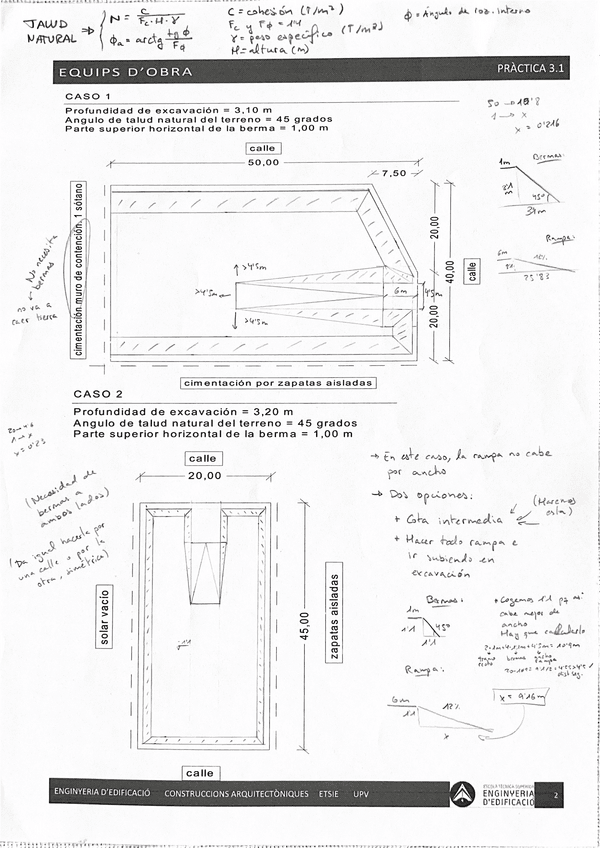 TALUD NATURAL ⇒ { N = C / Fc · H · γ
φa = arctg tg φ / Fφ
C = cohesión (T/m²)
Fc y Fφ = 1'4
γ = peso específico (T/m³)
H = altura (m)
φ = Ángulo de roz. interno
EQUIPS D'OBRA
PRÀCTICA 3.1
CASO 1
Profundidad de excavación = 3,10 m
Angulo de talud natural del terreno = 45 grados
Parte superior horizontal de la berma = 1,00 m
1 → x
x = 0'216
calle
50,00
7,50
Bermas:
1m
45º
Rampa:
6m
cimentación muro de contención. 1 sótano
No necesita bermas
no va a caer tierra
20,00
40,00
20,00
calle
>4'5m
>4'5m
>4'5m
6m
4'5m
cimentación por zapatas aisladas
CASO 2
Profundidad de excavación = 3,20 m
Angulo de talud natural del terreno = 45 grados
Parte superior horizontal de la berma = 1,00 m
1 → x
calle
20,00
(Necesidad de bermas a ambos lados)
(Da igual hacerla por una calle o por la otra, simétrica)
→ En este caso, la rampa no cabe por ancho
→ Dos opciones:
+ Cota intermedia
(Haremos esta)
+ Hacer todo rampa e ir subiendo en excavación
solar vacío
45,00
zapatas aisladas
Bermas:
1m
1'1
45º
1'1
• Cogemos 1'1 pq así cabe mejor de ancho
Hay que calcularlo
Rampa:
6m
12%
1'1
x
x = 9'16m
calle
ENGINYERIA D'EDIFICACIÓ
CONSTRUCCIONS ARQUITECTÒNIQUES
ETSIE
UPV
ESCOLA TÈCNICA SUPERIOR
ENGINYERIA
D'EDIFICACIÓ
2